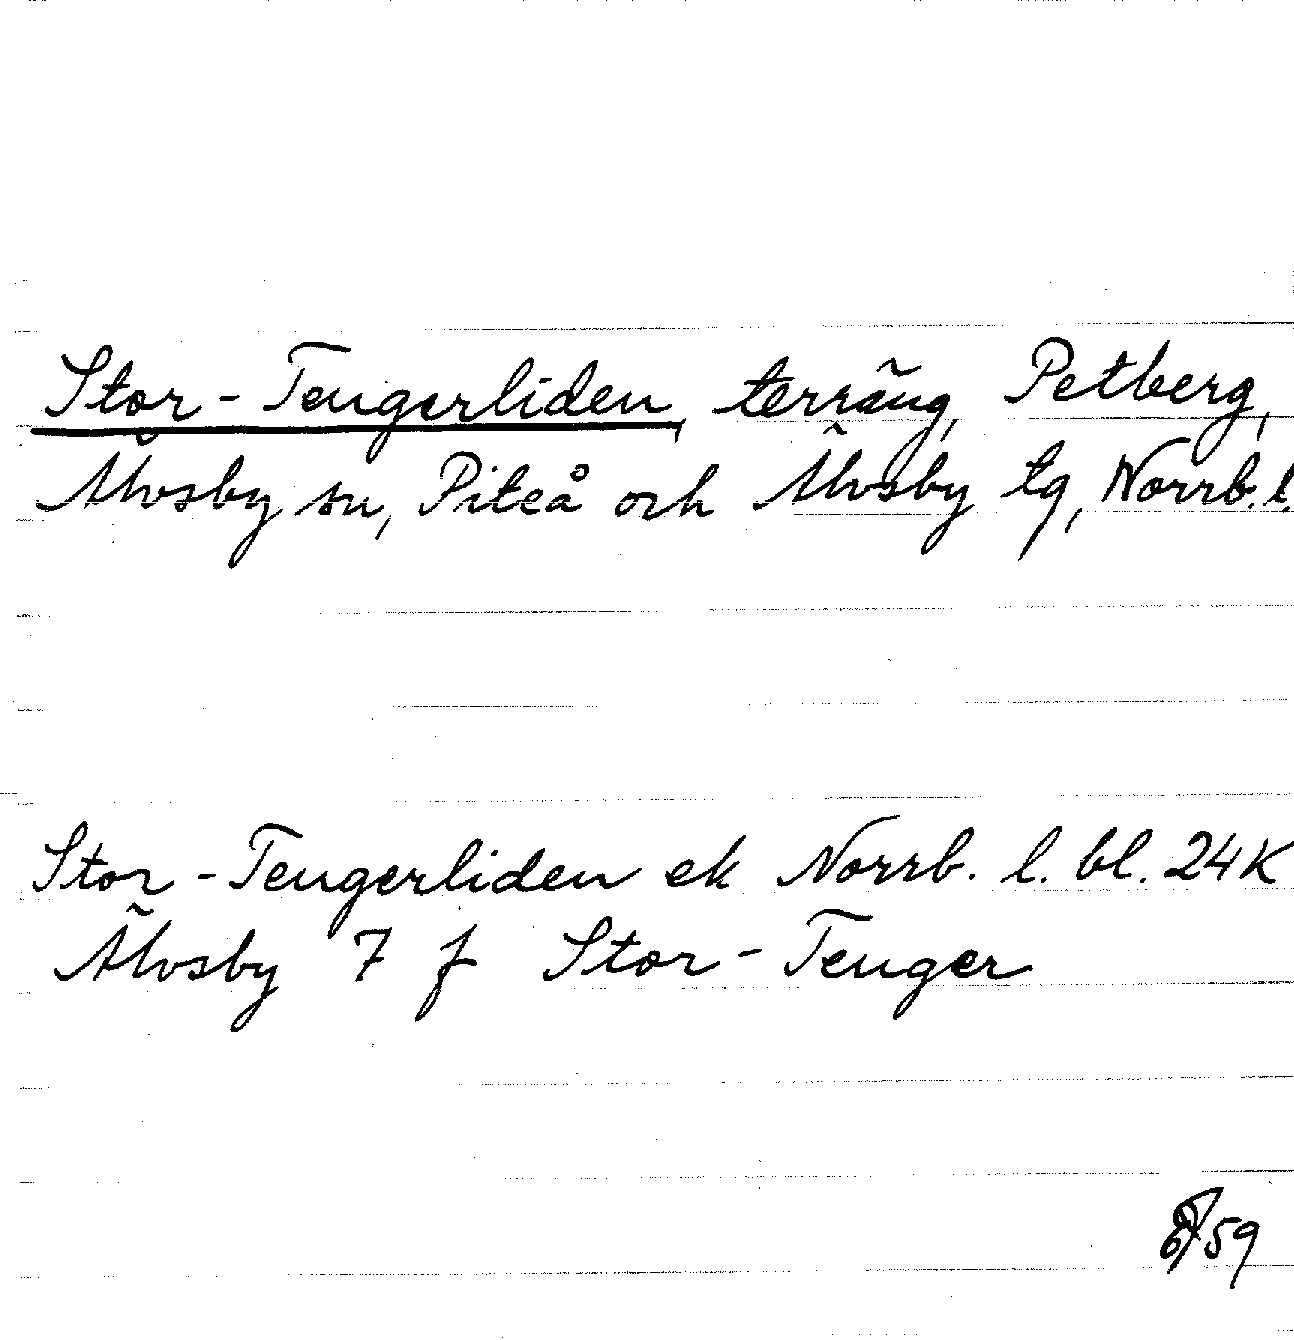 Stor-Tengerliden, terräng, Petberg,
Älvsby sn, Piteå och Älvsby tg, Norrb. l.
Stor-Tengerliden ek Norrb. l. bl. 24K
Älvsby 7 f Stor-Tenger
59